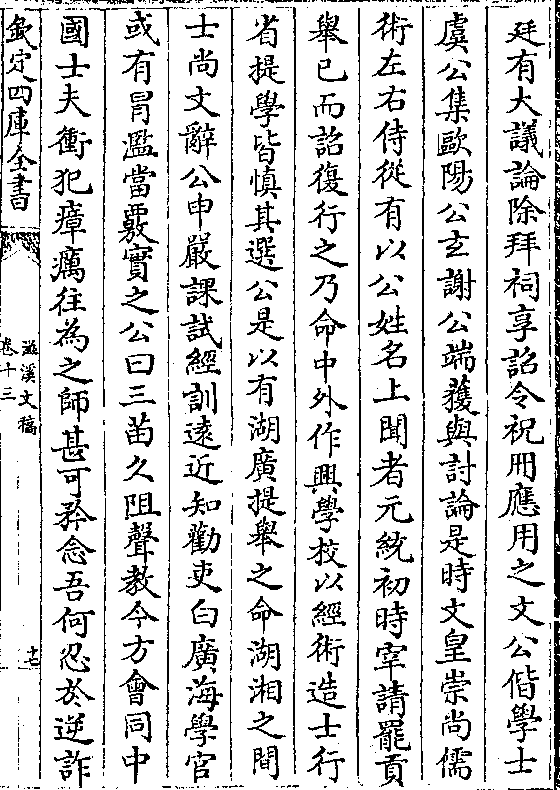 廷有大議論除拜祠享詔令祝冊應用之文公偕學士
虞公集歐陽公玄謝公端獲與討論是時文皇崇尚儒
術左右侍從有以公姓名上聞者元統初時宰請罷貢
舉已而詔復行之乃命中外作興學校以經術造士行
省提學皆慎其選公是以有湖廣提舉之命湖湘之間
士尚文辭公申嚴課試經訓遠近知勸吏白廣海學官
或有冒濫當覈實之公曰三苗久阻聲教今方會同中
國士夫衝犯瘴癘往為之師甚可矜念吾何忍於逆詐
欽定四庫全書
滋溪文稿
卷十三
十七